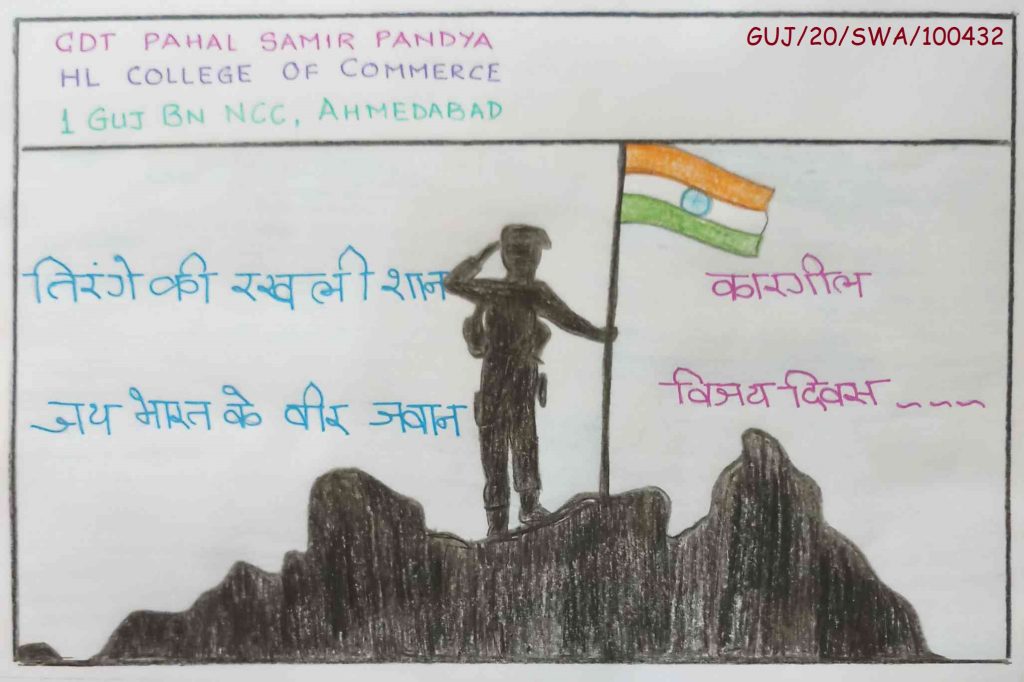 CDT PAHAL SAMIR PANDYA
GUJ/20/SWA/100432
HL COLLEGE OF COMMERCE
1 GUJ BN NCC, AHMEDABAD
तिरंगे की रखली शान
कारगील
जय भारत के वीर जवान
विजय दिवस ---